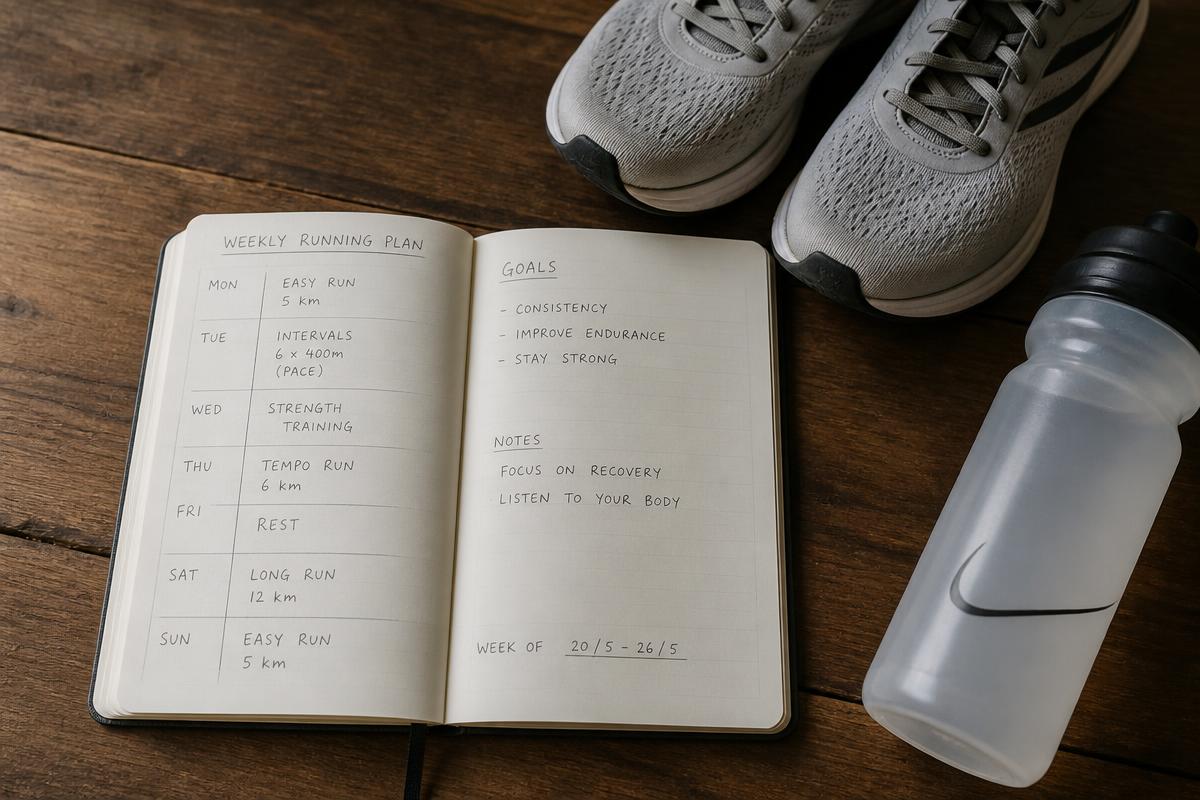 WEEKLY RUNNING PLAN
MON
EASY RUN
5 km
TUE
INTERVALS
6 x 400m
(PACE)
WED
STRENGTH
TRAINING
THU
TEMPO RUN
6 km
FRI
REST
SAT
LONG RUN
12 km
SUN
EASY RUN
5 km
GOALS
- CONSISTENCY
- IMPROVE ENDURANCE
- STAY STRONG
NOTES
FOCUS ON RECOVERY
LISTEN TO YOUR BODY
WEEK OF 20/5 - 26/5